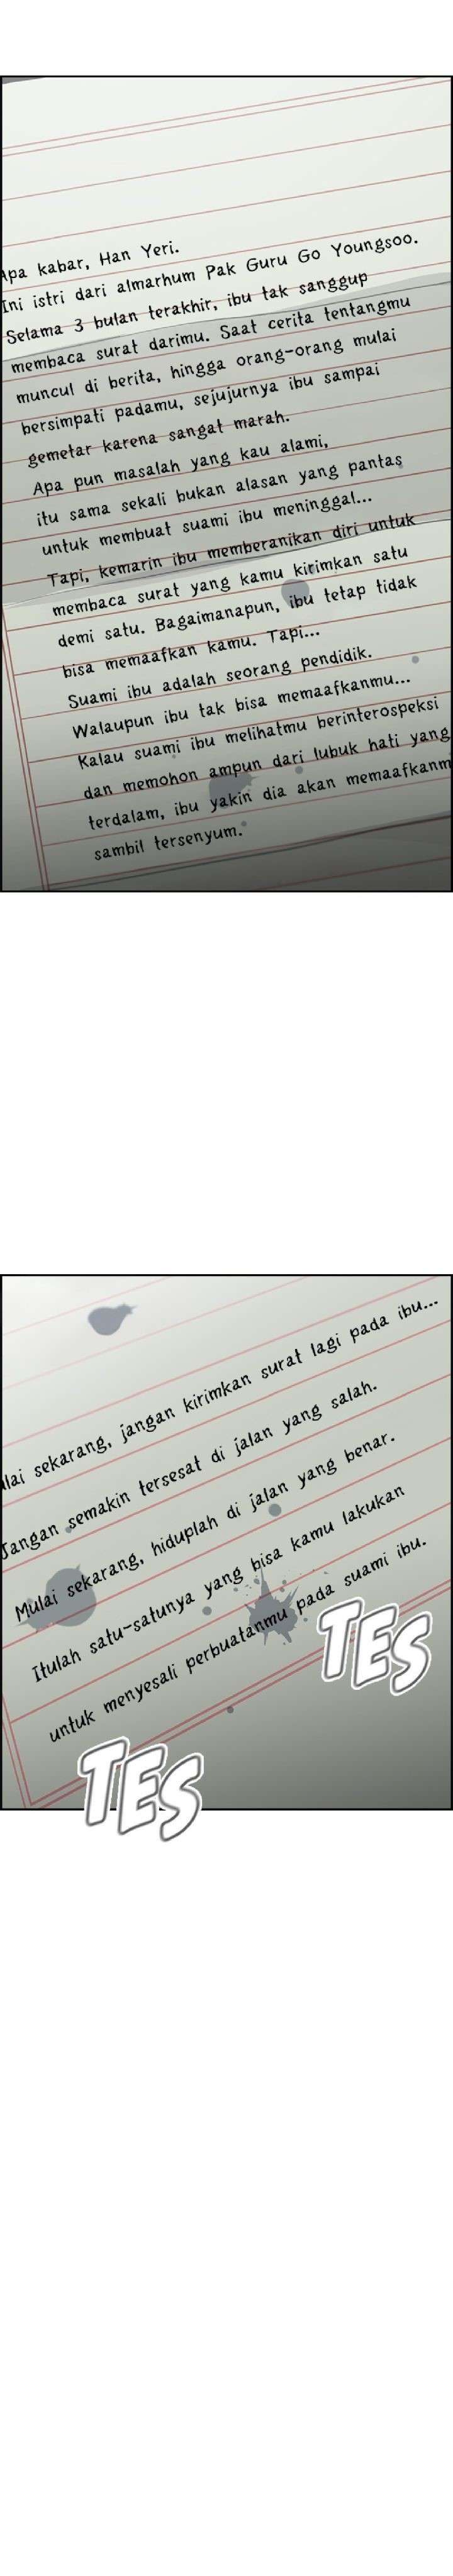 Apa kabar, Han Yeri.
Ini istri dari almarhum Pak Guru Go Youngsoo.
Selama 3 bulan terakhir, ibu tak sanggup
membaca surat darimu. Saat cerita tentangmu
muncul di berita, hingga orang-orang mulai
bersimpati padamu, sejujurnya ibu sampai
gemetar karena sangat marah.
Apa pun masalah yang kau alami,
itu sama sekali bukan alasan yang pantas
untuk membuat suami ibu meninggal...
Tapi, kemarin ibu memberanikan diri untuk
membaca surat yang kamu kirimkan satu
demi satu. Bagaimanapun, ibu tetap tidak
bisa memaafkan kamu. Tapi...
Suami ibu adalah seorang pendidik.
Walaupun ibu tak bisa memaafkanmu...
Kalau suami ibu melihatmu berinterospeksi
dan memohon ampun dari lubuk hati yang
terdalam, ibu yakin dia akan memaafkanm
sambil tersenyum.
lai sekarang, jangan kirimkan surat lagi pada ibu...
Jangan semakin tersesat di jalan yang salah.
Mulai sekarang, hiduplah di jalan yang benar.
Itulah satu-satunya yang bisa kamu lakukan
untuk menyesali perbuatanmu pada suami ibu.
TES
TES